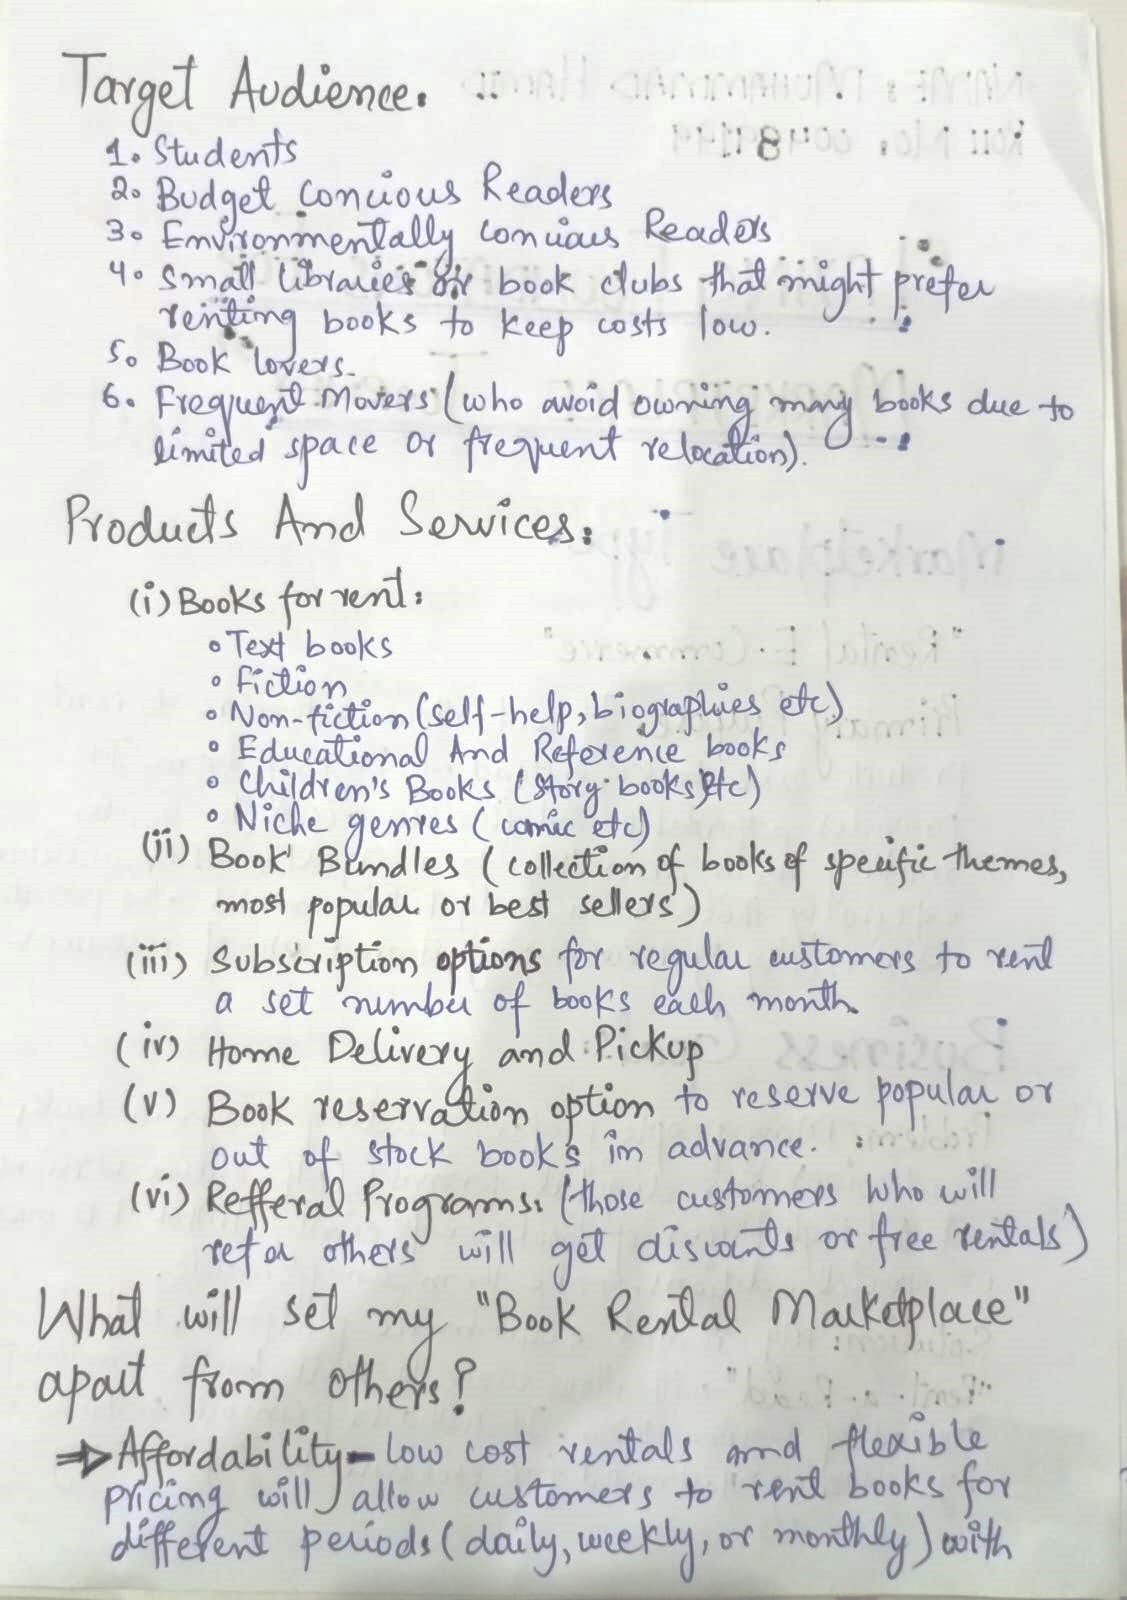 Target Audience.
1. Students
2. Budget Concious Readers
3. Environmentally Concious Readers
4. Small libraries or book clubs that might prefer
renting books to keep costs low.
5. Book lovers.
6. Frequent Movers (who avoid owning many books due to
limited space or frequent relocation).
Products And Services:
(i) Books for rent:
• Text books
• Fiction
• Non-fiction (self-help, biographies etc)
• Educational And Reference books
• Children's Books (story books etc)
• Niche genres (comic etc)
(ii) Book Bundles (collection of books of specific themes,
most popular or best sellers)
(iii) Subscription options for regular customers to rent
a set number of books each month.
(iv) Home Delivery and Pickup
(v) Book reservation option to reserve popular or
out of stock books in advance.
(vi) Refferal Programs: (those customers who will
refer others will get discounts or free rentals)
What will set my "Book Rental Marketplace"
apart from others?
⇒ Affordability - low cost rentals and flexible
pricing will allow customers to rent books for
different periods (daily, weekly, or monthly) with